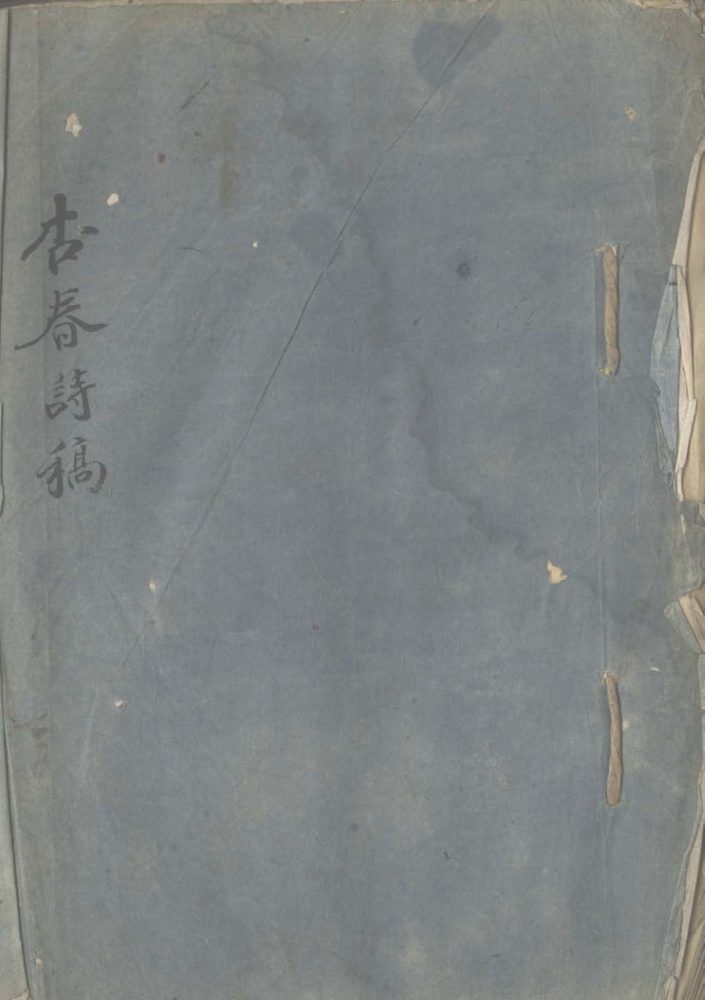 杏春詩稿